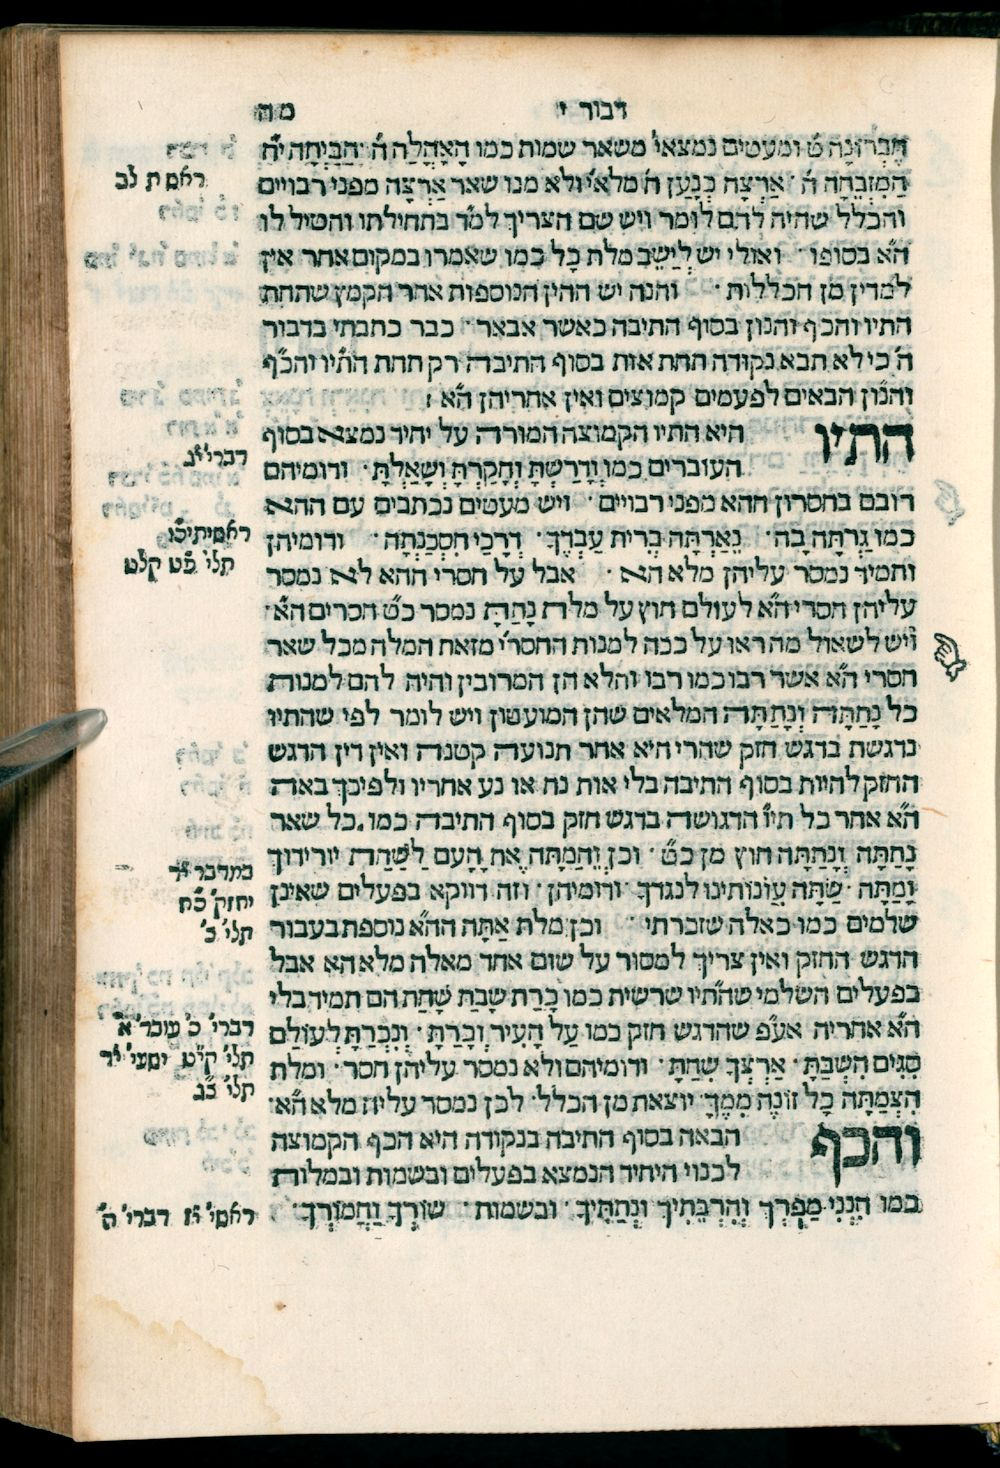 דבור י
מה
חֶבְרוֹנָה ט֗ ומעטים נמצאי֗ משאר שמות כמו הָאֹהֱלָה ה֗ · הַבַּיְתָה י֗ח
הַמִּזְבֵּחָה ה֗ · אַרְצָה כְּנַעַן ה֗ מלאי֗ ולא מנו שאר אַרְצָה מפני רבויים
והכלל שהיה להם לומר ויש שם הצריך למ֗ד בתחילתו והטיל לו
ה֗א בסופו · ואולי יש לְיַשֵּׁב מלת כָל כמו שאמרו במקום אחר אין
למדין מן הכללות · והנה יש ההין הנוספות אחר הקמץ שתחת
התיו והכף והנון בסוף התיבה כאשר אבאר · כבר כתבתי בדבור
ה֗ כי לא תבא נקודה תחת אות בסוף התיבה רק תחת הת֗יו והכ֗ף
והנ֗ון הבאים לפעמים קמוצים ואין אחריהן ה֗א :
התיו היא התיו הקמוצה המורה על יחיד נמצא בסוף
העוברים כמו וְדָרַשְׁתָּ וְחָקַרְתָּ וְשָׁאַלְתָּ · ודומיהם
רובם בחסרון ההא מפני רבויים · ויש מעטים נכתבים עם ההא
כמו גַרְתָּה בָּהּ · נֵאַרְתָּה בְּרִית עַבְדֶּךָ · דְּרָכַי הִסְכַּנְתָּה · ודומיהן
ותמיד נמסר עליהן מלא הא · אבל על חסרי ההא לא נמסר
עליהן חסרי ה֗א לעולם חוץ על מלת נָתַתָּ נמסר כ֗ט חסרים ה֗א ·
ויש לשאול מה ראו על ככה למנות החסרי֗ מזאת המלה מכל שאר
חסרי ה֗א אשר רבו כמו רבו והלא הן המרובין והיה להם למנות
כל נָתַתָּה וְנָתַתָּה המלאים שהן המועטין ויש לומר לפי שהתיו
נדגשת בדגש חזק שהרי היא אחר תנועה קטנה ואין דין הדגש
החזק להיות בסוף התיבה בלי אות נח או נע אחריו ולפיכך באה
ה֗א אחר כל תי֗ו הדגושה בדגש חזק בסוף התיבה כמו כל שאר
נָתַתָּה וְנָתַתָּה חוץ מן כ֗ט · וכן וְהֵמַתָּה אֶת הָעָם לַשַּׁחַת יורידוך
וָמַתָּה · שַׁתָּה עֲוֹנוֹתֵינוּ לנגדך ודומיהן · וזה דווקא בפעלים שאינן
שלמים כמו כאלה שזכרתי · וכן מלת אַתָּה הה֗א נוספת בעבור
הדגש החזק ואין צריך למסור על שום אחד מאלה מלא הא אבל
בפעלים השלמי שהת֗יו שרשית כמו כָרַת שָׁבַת שָׁחַת הם תמיד בלי
ה֗א אחריה אע֗פ שהדגש חזק כמו עַל הָעִיר וְכָרַתָּ · וְנִכְרַתָּ לְעוֹלָם
סִגִים הִשְׁבַּתָּ · אַרְצְךָ שִׁחַתָּ · ודומיהם ולא נמסר עליהן חסר · ומלת
הִצְמַתָּה כָּל זוֹנֶה מִמֶּךָּ יוצאת מן הכלל · לכן נמסר עליה מלא ה֗א ·
והכף הבאה בסוף התיבה בנקודה היא הכף הקמוצה
לכנוי היחיד הנמצא בפעלים ובשמות ובמלות
כמו הִנְנִי מַפְרְךָ וְהִרְבֵּתִיךָ וּנְתַתִּיךָ · ובשמות שׁוֹרְךָ וַחֲמוֹרְךָ ·
ראשית לב
דברי֗ י֗ג
תלי֗ פ֗ט קלט
במדבר י֗ד
יחזק֗ כ֗ח
תלי֗ צ֗
דברי֗ כ֗ עובד֗ א֗
תלי֗ קי֗ט ישעי֗ י֗ד
תלי֗ ע֗ג
ראשי֗ מ֗ח דברי֗ ה֗